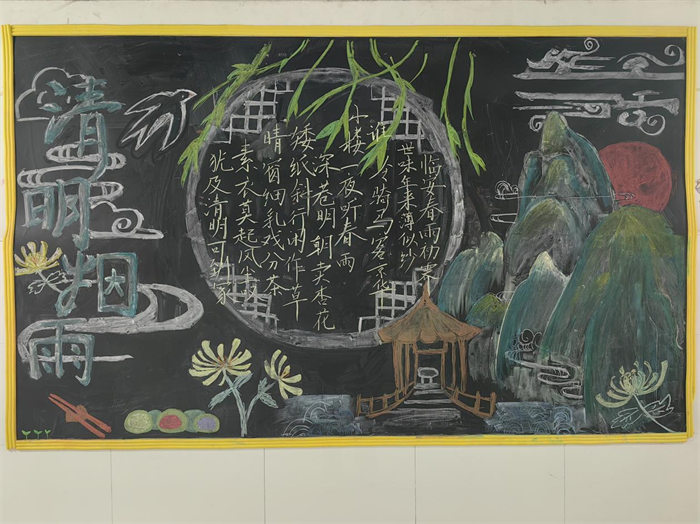 清明烟雨
临安春雨初霁
世味年来薄似纱
谁令骑马客京华
小楼一夜听春雨
深巷明朝卖杏花
矮纸斜行闲作草
晴窗细乳戏分茶
素衣莫起风尘叹
犹及清明可到家